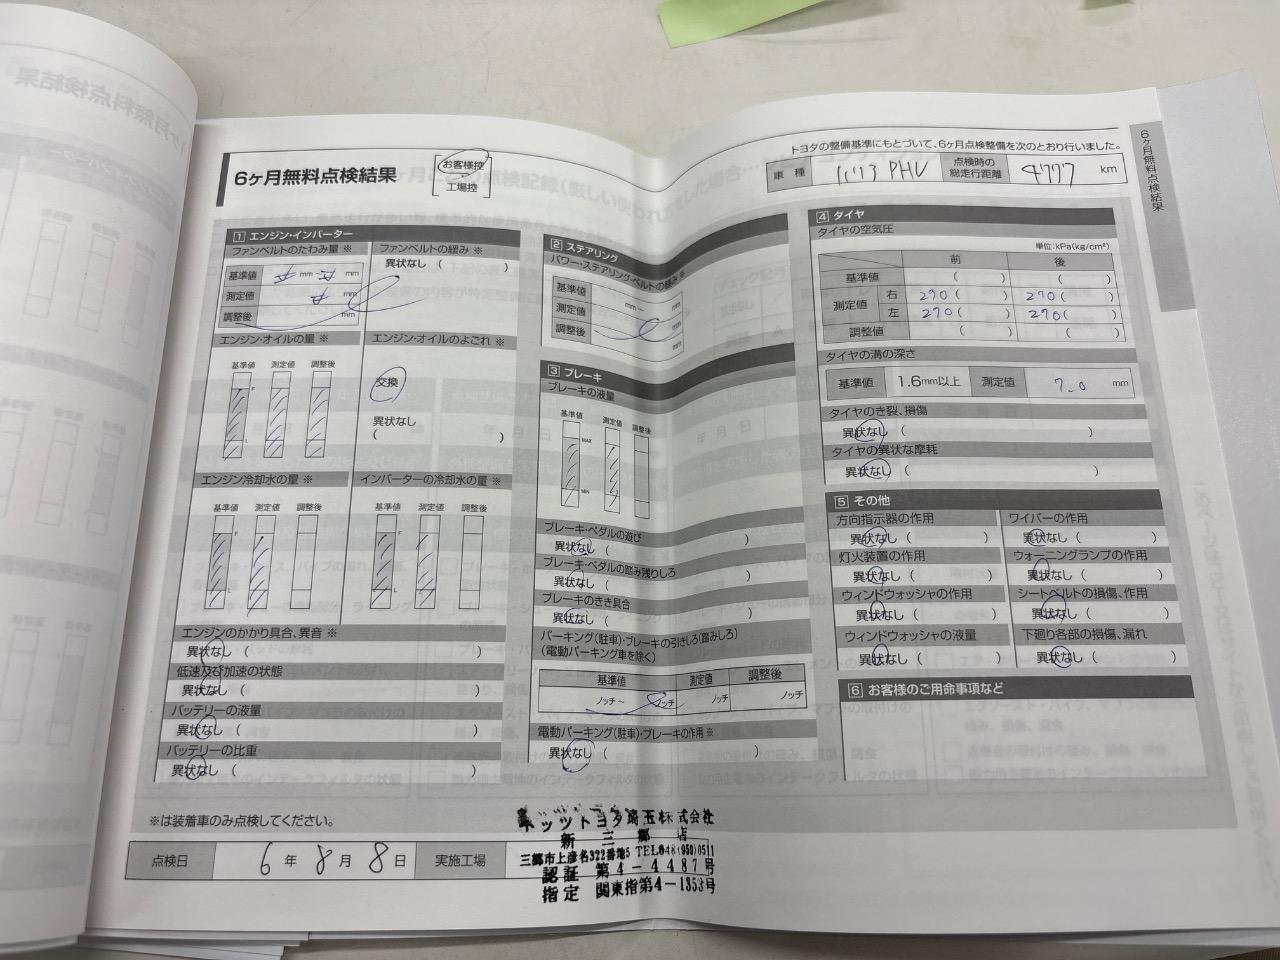 6ヶ月無料点検結果
お客様控
工場控
トヨタの整備基準にもとづいて、6ヶ月点検整備を次のとおり行いました。
車種 PHV 点検時の総走行距離 4777 km
6ヶ月無料点検結果
1 エンジン・インバーター
ファンベルトのたわみ量 ※ ファンベルトの緩み ※
基準値 mm ~ mm 異状なし ( )
測定値 mm
調整後 mm
エンジン・オイルの量 ※ エンジン・オイルのよごれ ※
基準値 測定値 調整後
F
L
交換
異状なし
( )
エンジン冷却水の量 ※ インバーターの冷却水の量 ※
基準値 測定値 調整後 基準値 測定値 調整後
F F
L L
エンジンのかかり具合、異音 ※
異状なし ( )
低速及び加速の状態
異状なし ( )
バッテリーの液量
異状なし ( )
バッテリーの比重
異状なし ( )
2 ステアリング
パワー・ステアリング・ベルトの緩み ※
基準値 mm ~ mm
測定値 mm
調整後 mm
3 ブレーキ
ブレーキの液量
基準値 測定値 調整後
MAX
MIN
ブレーキ・ペダルの遊び
異状なし ( )
ブレーキ・ペダルの踏み残りしろ
異状なし ( )
ブレーキのきき具合
異状なし ( )
パーキング(駐車)・ブレーキの引きしろ(踏みしろ)
(電動パーキング車を除く)
基準値 測定値 調整後
ノッチ~ ノッチ ノッチ ノッチ
電動パーキング(駐車)・ブレーキの作用 ※
異状なし ( )
4 タイヤ
タイヤの空気圧
単位:kPa(kg/cm²)
前 後
基準値 ( ) ( )
測定値 右 270 ( ) 270 ( )
左 270 ( ) 270 ( )
調整値 ( ) ( )
タイヤの溝の深さ
基準値 1.6mm以上 測定値 7.0 mm
タイヤのき裂、損傷
異状なし ( )
タイヤの異状な摩耗
異状なし ( )
5 その他
方向指示器の作用 ワイパーの作用
異状なし ( ) 異状なし ( )
灯火装置の作用 ウォーニングランプの作用
異状なし ( ) 異状なし ( )
ウィンドウォッシャの作用 シートベルトの損傷、作用
異状なし ( ) 異状なし ( )
ウィンドウォッシャの液量 下廻り各部の損傷、漏れ
異状なし ( ) 異状なし ( )
6 お客様のご用命事項など
※は装着車のみ点検してください。
点検日 6年 8月 8日 実施工場
ネッツトヨタ埼玉株式会社
新三郷店
三郷市上彦名322番地5 TEL048(950)0511
認証 第4-4487号
指定 関東指第4-1353号